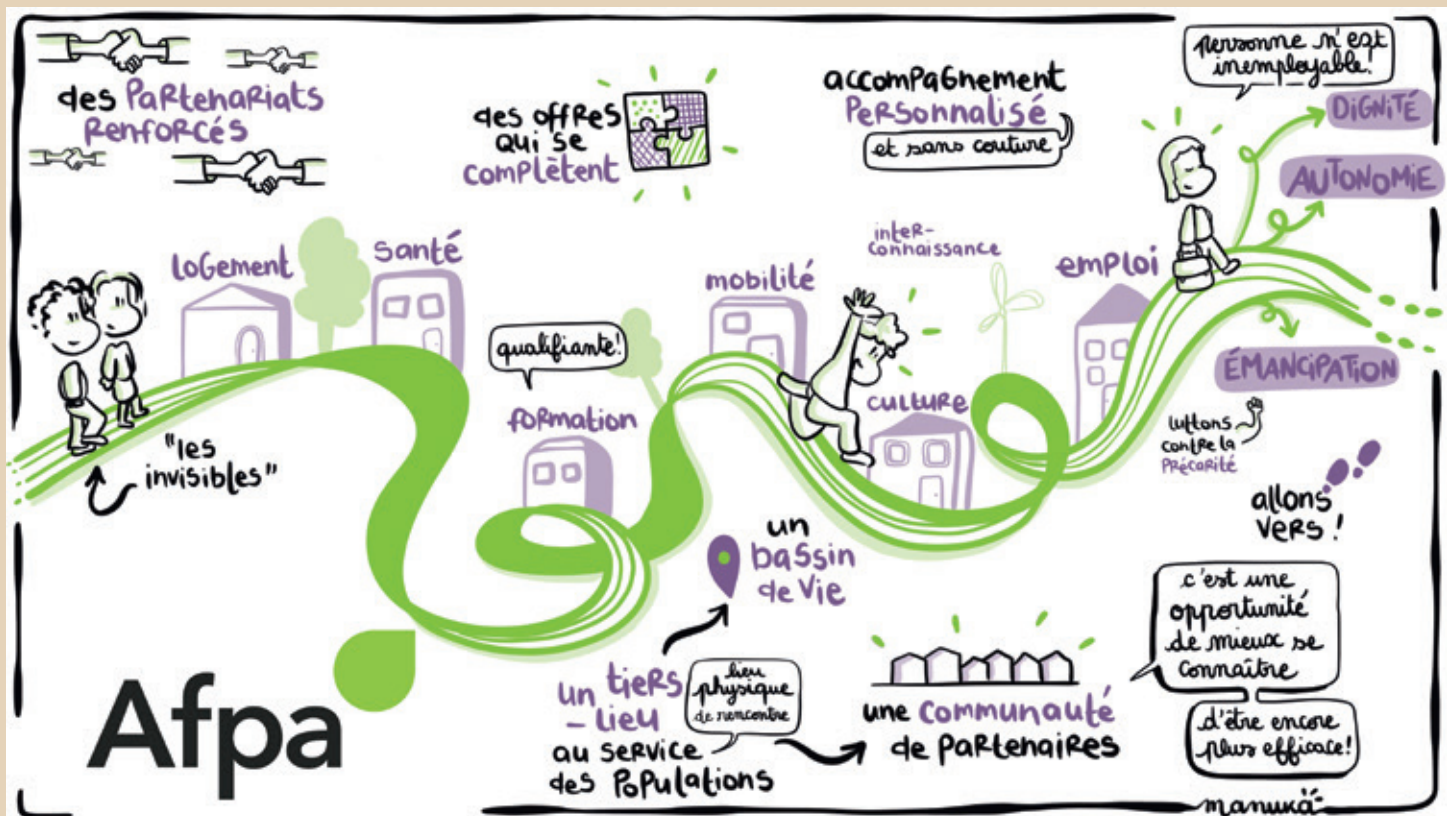 des Partenariats
Renforcés
des offres
qui se
complètent
accompagnement
Personnalisé
et sans couture
personne n'est
inemployable!
DIGNITÉ
AUTONOMIE
ÉMANCIPATION
logement
santé
qualifiante!
formation
mobilité
inter-
connaissance
culture
emploi
"les
invisibles"
luttons
contre la
Précarité
allons
vers !
un
bassin
de vie
un tiers
- lieu
au service
des Populations
lieu
physique
de rencontre
une communauté
de partenaires
c'est une
opportunité
de mieux se
connaître
d'être encore
plus efficace!
Afpa
manukä